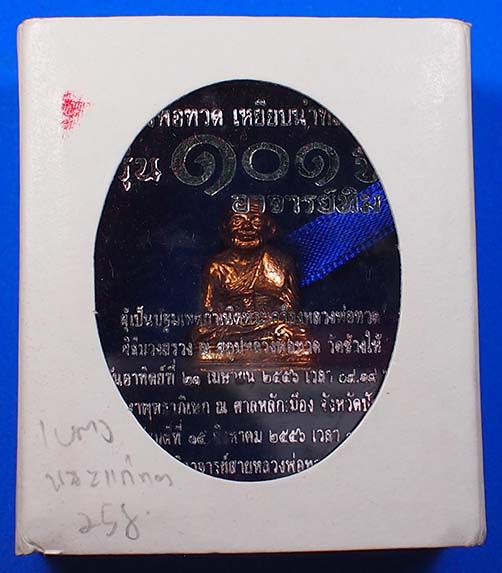 พ่อทวด เหยียบน้ำทะ
รุ่น ๑๐๑ ปี
อาจารย์ทิม
ผู้เป็นปฐมเหตุกำเนิดพระเครื่องหลวงพ่อทวด
พิธีบวงสรวง ณ สถูปหลวงพ่อทวด วัดช้างให้
วันอาทิตย์ที่ ๒๑ เมษายน ๒๕๕๖ เวลา ๐๙.๑๙
ณ ศาลหลักเมือง จังหวัดปั
ที่ ๑๕ สิงหาคม ๒๕๕๖ เวลา
อาจารย์สายหลวงพ่อท